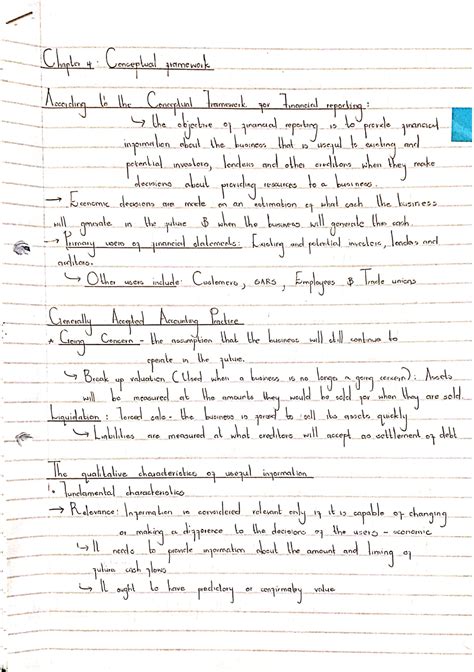 Chapter 4: Conceptual framework
According to the Conceptual Framework for Financial reporting:
↳ the objective of financial reporting is to provide financial
information about the business that is useful to existing and
potential investors, lenders and other creditors when they make
decisions about providing resources to a business.
→ Economic decisions are made on an estimation of what cash the business
will generate in the future & when the business will generate this cash
→ Primary users of financial statements: Existing and potential investors, lenders and
creditors.
↳ Other users include: Customers, SARS, Employees & Trade unions
Generally Accepted Accounting Practice
* Going Concern - the assumption that the business will still continue to
operate in the future.
↳ Break up valuation (Used when a business is no longer a going concern): Assets
will be measured at the amounts they would be sold for when they are sold.
Liquidation: Forced sale - the business is forced to sell its assets quickly
↳ Liabilities are measured at what creditors will accept as settlement of debt
The qualitative characteristics of useful information
• Fundamental characteristics
→ Relevance: Information is considered relevant only if it is capable of changing
or making a difference to the decisions of the users - economic
↳ It needs to provide information about the amount and timing of
future cash flows
↳ It ought to have predictory or confirmaby value